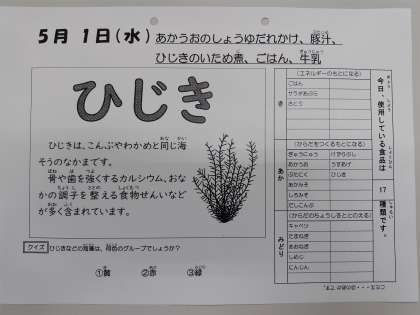 5月 1日(水) あかうおのしょうゆだれかけ、豚汁、
ひじきのいため煮、ごはん、牛乳
ひじき
ひじきは、こんぶやわかめと同じ海
そうのなかまです。
骨や歯を強くするカルシウム、おな
かの調子を整える食物せんいなど
が多く含まれています。
クイズ ひじきなどの海藻は、何色のグループでしょうか?
①黄 ②赤 ③緑
今日、使用している食品は 17 種類です。
き
(エネルギーのもとになる)
ごはん
サラダあぶら
さとう
あか
(からだをつくるもとになる)
ぎゅうにゅう けずりぶし
あかうお
ぶたにく ひじき
あかみそ
しろみそ
だしこんぶ
みどり
(からだのちょうしをととのえる)
キャベツ
たまねぎ
あおねぎ
しめじ
にんじん